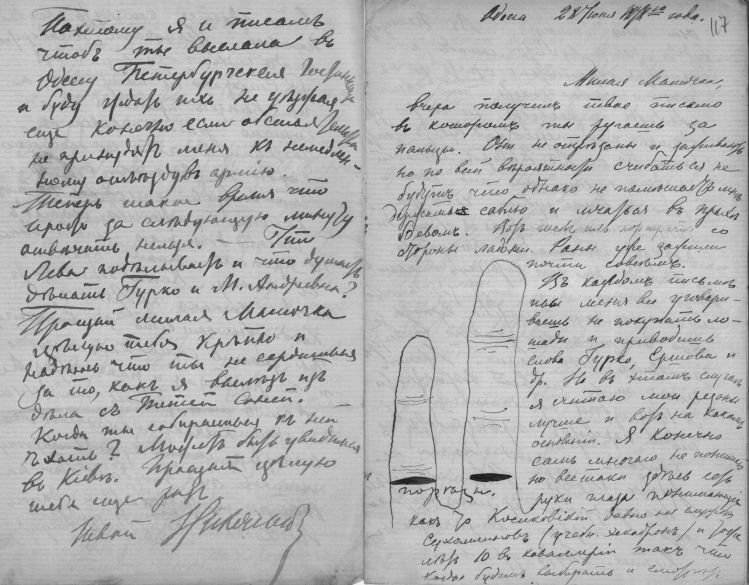 Поэтому я и писалъ
чтобъ ты выслала въ
Одессу Петербургскія
и буду ждать ихъ не уѣзжая
еще конечно если обстоятельства
не принудятъ меня къ немедлен-
ному отъѣзду въ армію.
Теперь такое время что
просто за слѣдующую минуту
отвѣчать нельзя. — Что
Лева подѣлываетъ и что думаетъ
дѣлать Гурко и М. Андреевна?
Прощай милая Мамочка
цѣлую тебя крѣпко и
надѣюсь что ты не сердишься
за то, какъ я вышелъ изъ
дѣла съ Тетей Соней.
Когда ты собираешься къ ней
ѣхать? Можетъ быть увидимся
въ Кіевѣ. Прощай цѣлую
тебя еще разъ
Твой
Одесса 28 Іюня года.
117
Милая Мамочка,
вчера получилъ твое письмо
въ которомъ ты ругаешь за
пальцы. Они не отрѣзаны и
но по всей вѣроятности сгибаться не
будутъ что однако не помѣшаетъ мнѣ
держать саблю и мчаться въ
Вотъ тебѣ со
стороны ладони. Раны уже зажили
почти совсѣмъ.
Въ каждомъ письмѣ
ты меня все уговари-
ваешь не покупать ло-
шади и приводишь
слова Гурко, Ершова и
др. Но въ этомъ случаѣ
я считаю мои резоны
лучше и вотъ на какомъ
основаніи. Я конечно
самъ многаго не понимаю
но все таки здѣсь есть
руки глаза понимающіе
порѣзы.
какъ то Косиковскій давно не
Сухомлиновъ (учебн. эскадронъ) и
лѣтъ 10 въ кавалеріи такъ что
когда будемъ выбирать и смотрѣть